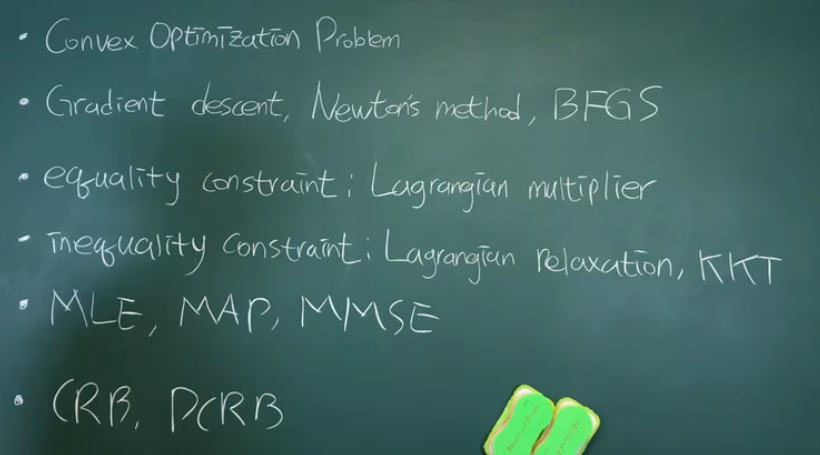 • Convex Optimization Problem
• Gradient descent, Newton's method, BFGS
• equality constraint; Lagrangian multiplier
• inequality constraint; Lagrangian relaxation, KKT
• MLE, MAP, MMSE
• CRB, DCRB